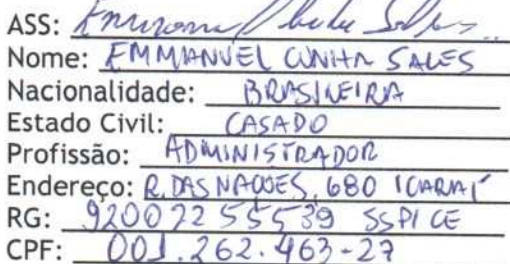 ASS: Emmanuel Cunha Sales
Nome: EMMANUEL CUNHA SALES
Nacionalidade: BRASILEIRA
Estado Civil: CASADO
Profissão: ADMINISTRADOR
Endereço: R. DAS NAÇÕES, 680 ICARAÍ
RG: 92002255539 SSP/CE
CPF: 001.262.463-27